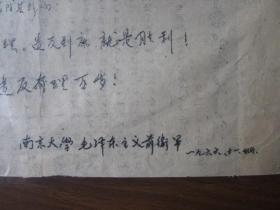 理。造反到底就是胜利！
造反有理万岁！
南京大學毛泽东主义前衛军
一九六六、十一、